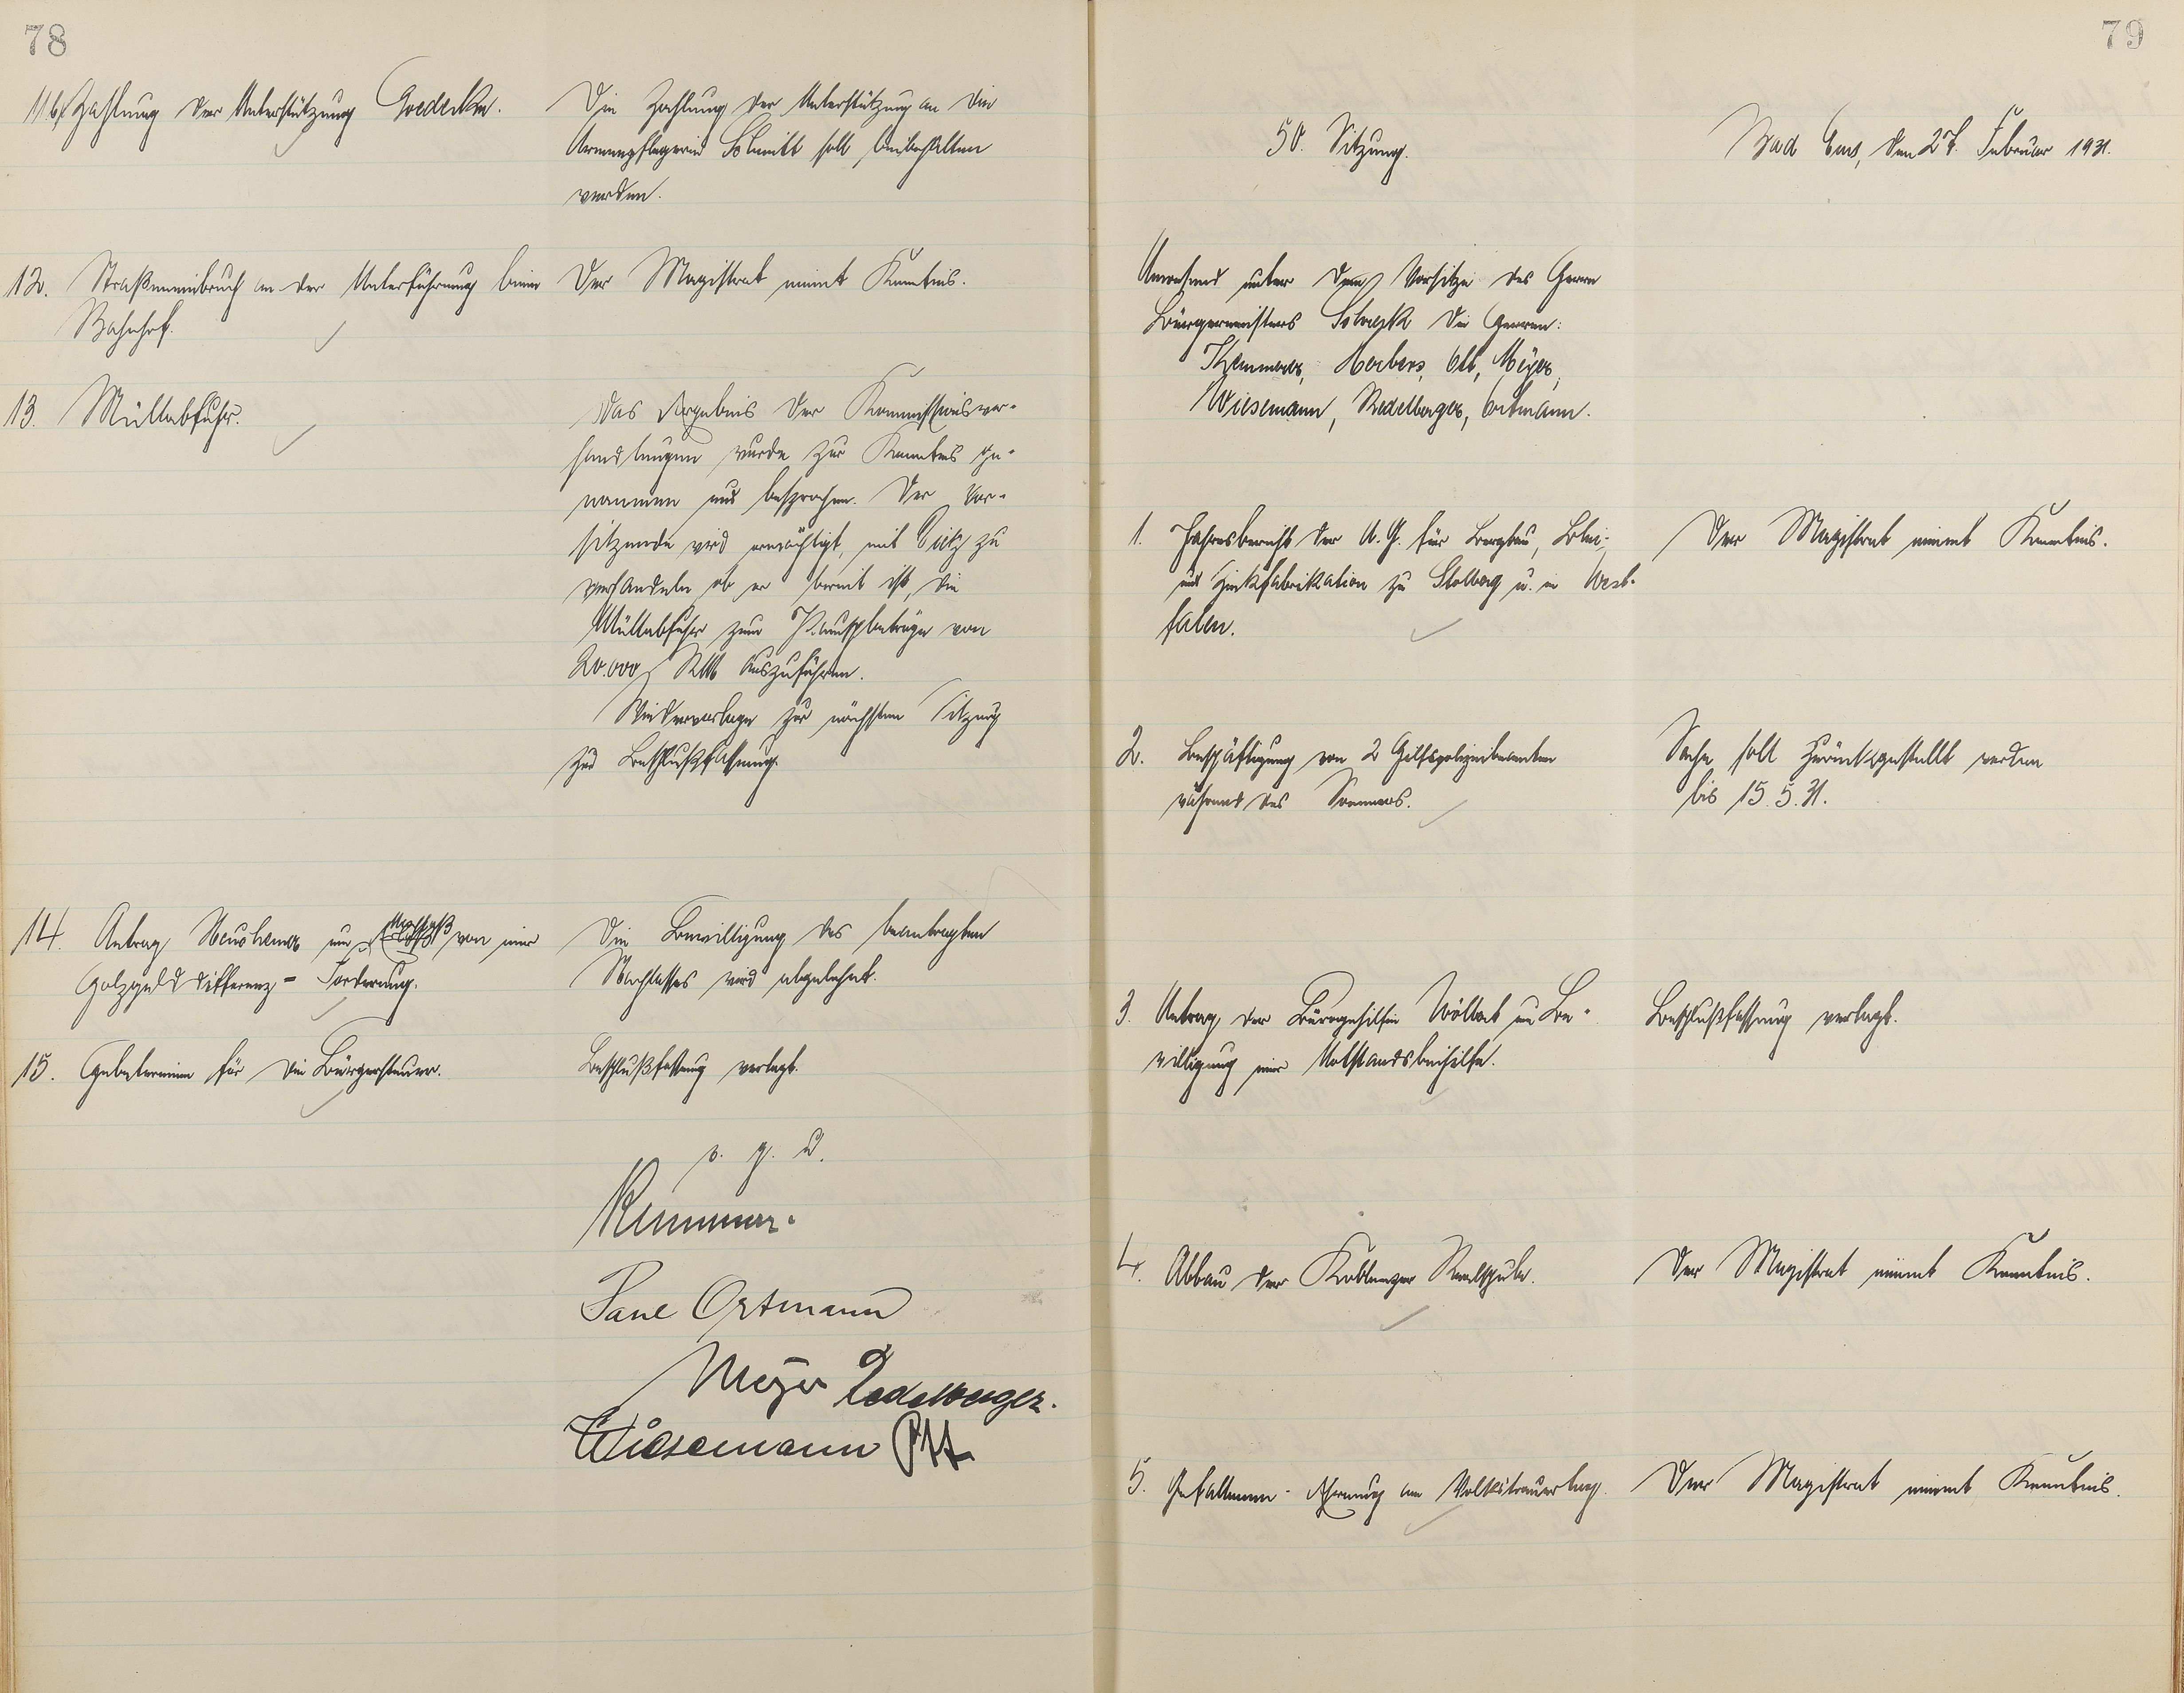 78
11b/ Zahlung der Unterstützung Goedecke.
Die Zahlung der Unterstützung an die
Armenpflegerin Schmitt soll beibehalten
werden.
12. Straßeneinbruch an der Unterführung beim
Bahnhof.
Der Magistrat nimt Kenntnis.
13. Müllabfuhr.
Das Ergebnis der Kommissionsver-
handlungen wurde zur Kenntnis ge-
nommen und besprochen. Der Vor-
sitzende wird ermächtigt, mit zu
verhandeln ob er bereit ist, die
Müllabfuhr zum Pauschbetrage von
20.000 RM auszuführen.
Wiedervorlage zur nächsten Sitzung
zur Beschlußfassung.
14. Antrag um Nachlaß von einer
Holzgelddifferenz-Forderung.
Die Bewilligung des beantragten
Nachlasses wird abgelehnt.
15. Hebetermine für die Bürgersteuer.
Beschlußfassung verlegt.
v. g. u.
Kummer.
Ortmann
Meyer Redelberger.
Wiesemann Ott
79
50. Sitzung.
Bad Ems, den 27. Februar 1931.
Anwesend unter dem Vorsitze des Herrn
Bürgermeisters die Herren:
Ott, Meyer,
Wiesemann, Redelberger, Ortmann.
1. Jahresbericht der A.G. für Bergbau, Blei-
und Zinkfabrikation zu Stolberg u. in West-
falen.
Der Magistrat nimmt Kenntnis.
2. Beschäftigung von 2 Hilfspolizeibeamten
während des Sommers.
Sache soll zurückgestellt werden
bis 15.5.31.
3. Antrag der Bürogehilfin um Be-
willigung einer Notstandsbeihilfe.
Beschlußfassung verlegt.
4. Abbau der Koblenzer Realschule.
Der Magistrat nimmt Kenntnis.
5. Gefallenen-Ehrung am Volkstrauertag.
Der Magistrat nimmt Kenntnis.